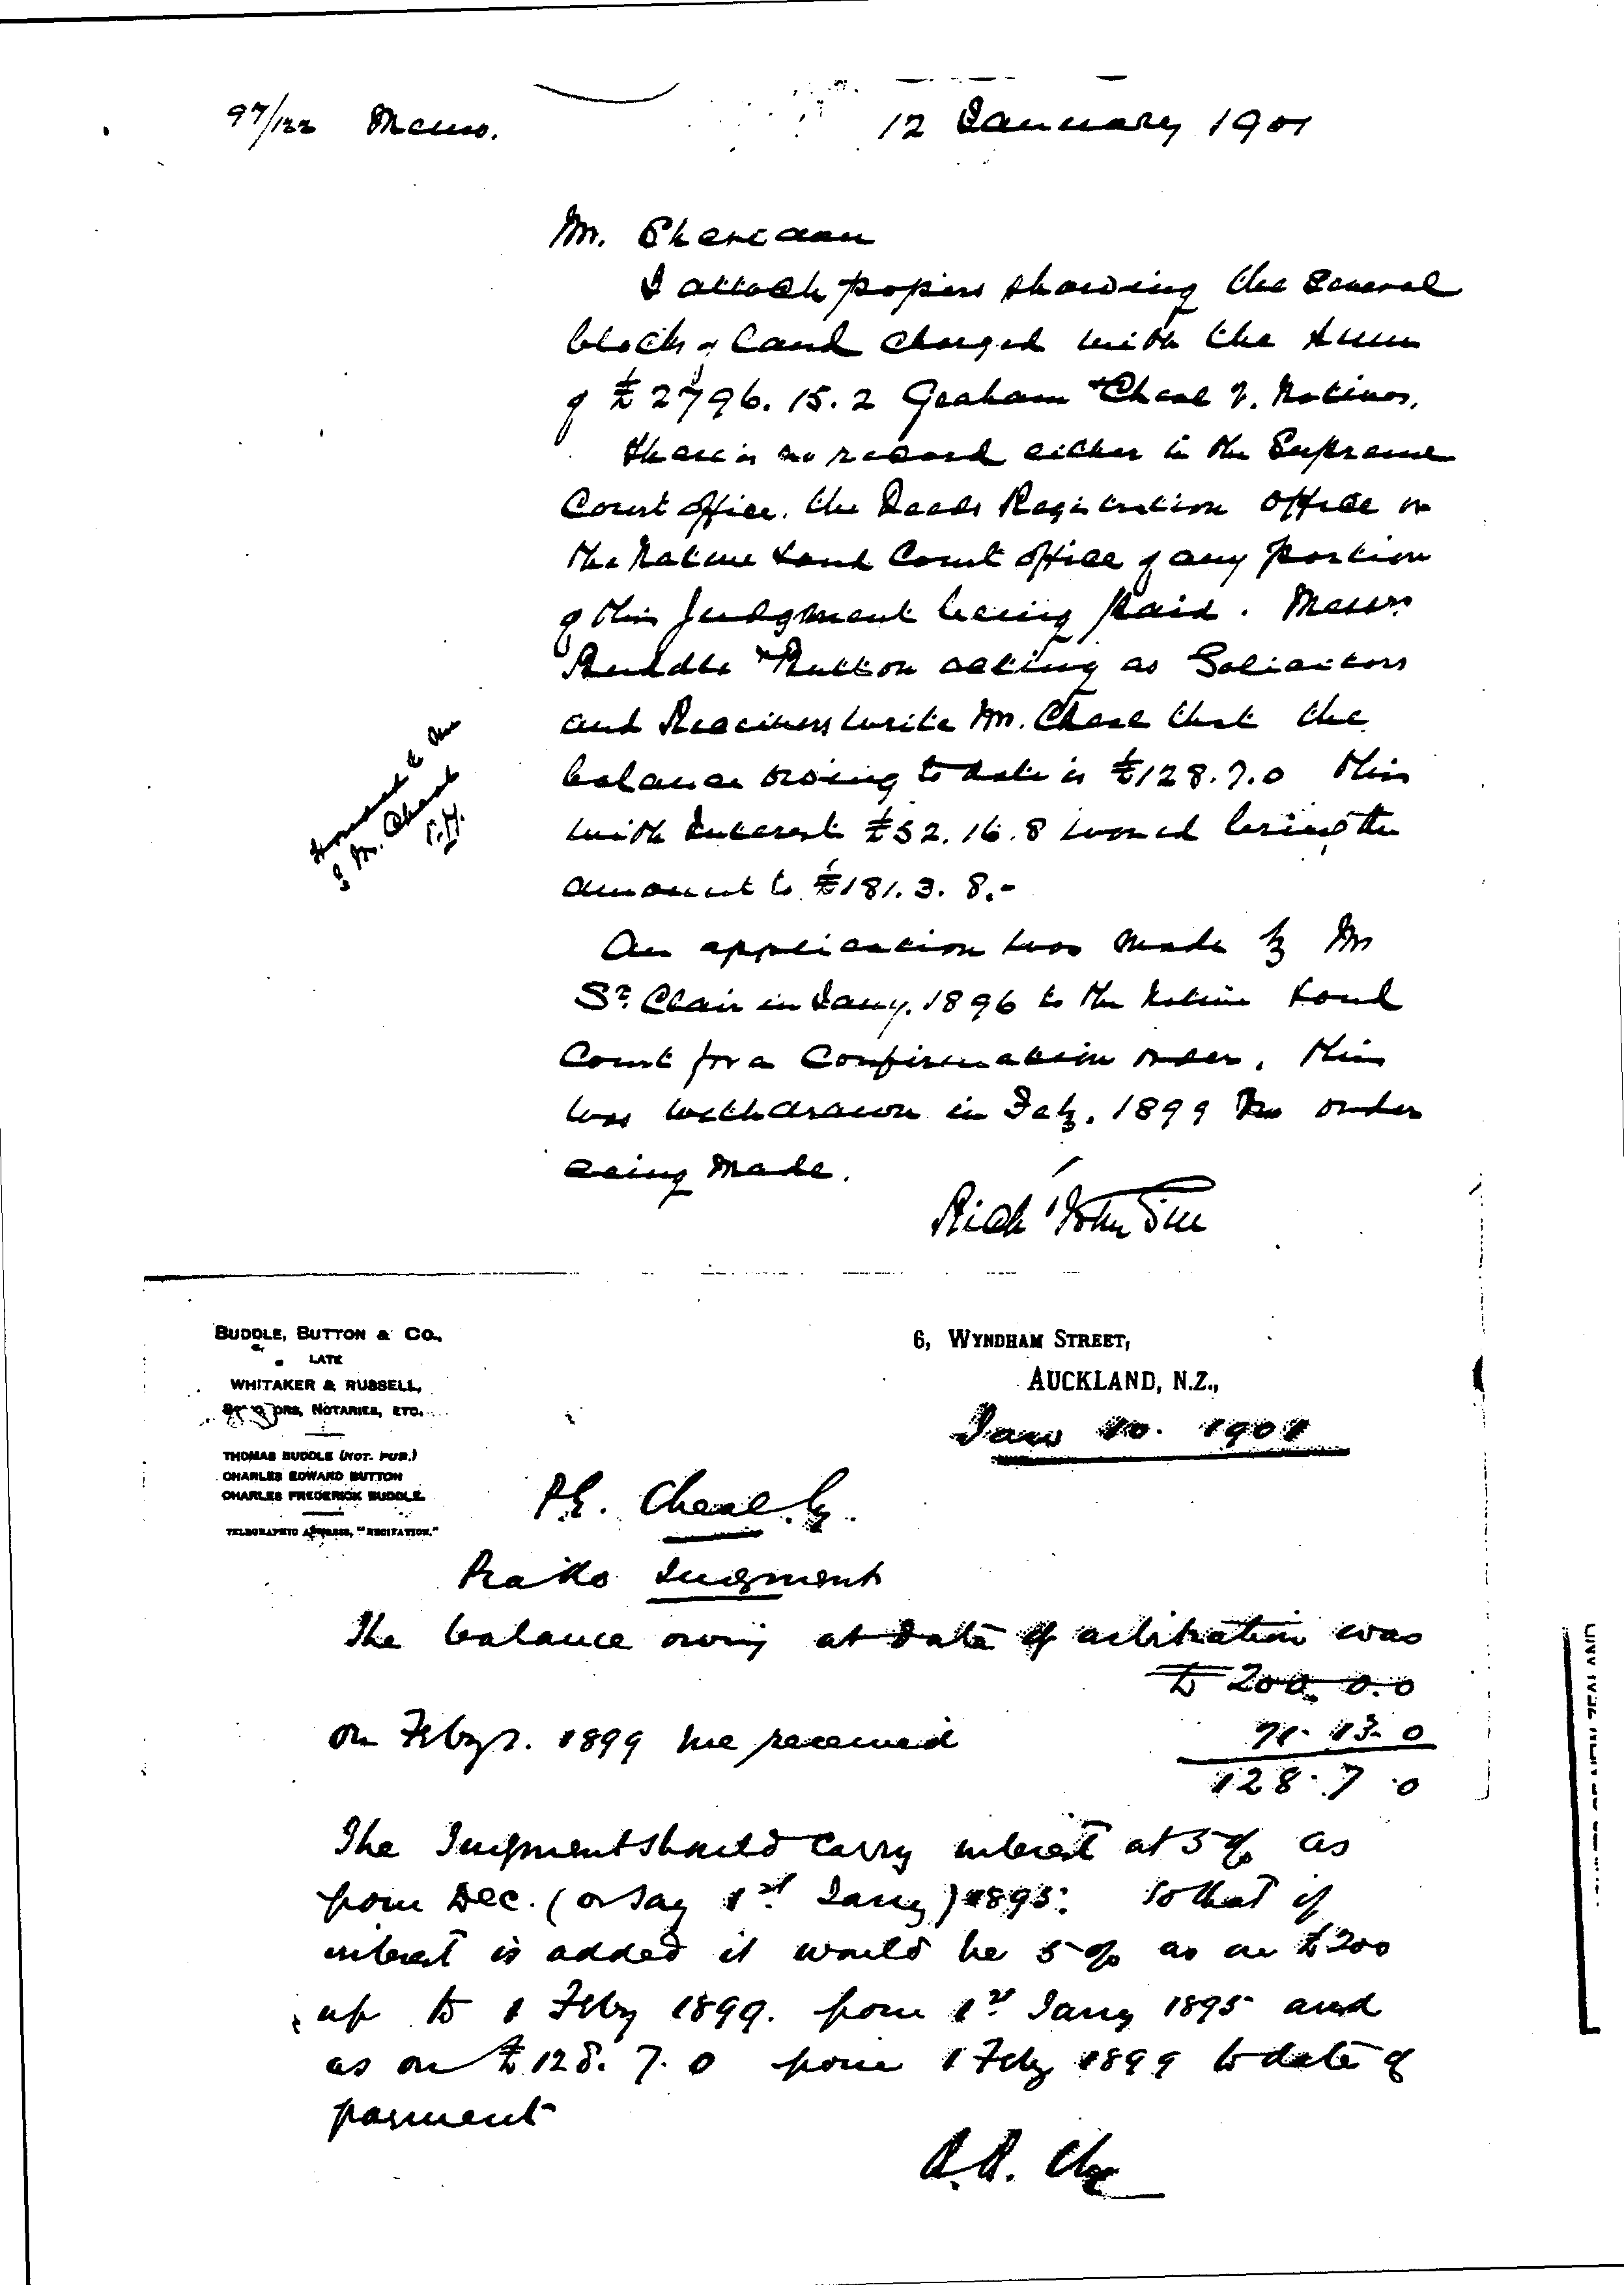 97/122 Memo. 12 January 1901
Mr. Sheridan
I attach papers showing the several
blocks of land charged with the sum
of £2796.15.2 Graham & Cheal v. Natives.
There is no record either in the Supreme
Court office, the Deeds Registration office or
the Native Land Court office of any portion
of this Judgment being paid. Messrs
Buddle & Button acting as Solicitors
and Receivers write Mr. Cheal that the
balance owing to date is £128.7.0 this
with Interest £52.16.8 would bring the
amount to £181.3.8.-
An application was made by Mr
St. Clair in Jany. 1896 to the Native Land
Court for a Confirmation order, this
was withdrawn in Feby. 1899 no order
being made.
Mr. Cheal
BUDDLE, BUTTON & CO.,
LATE
WHITAKER & RUSSELL,
NOTARIES, ETC.
THOMAS BUDDLE (NOT. PUB.)
CHARLES EDWARD BUTTON
CHARLES FREDERICK BUDDLE.
TELEGRAPHIC ADDRESS, "RECITATION."
6, WYNDHAM STREET,
AUCKLAND, N.Z.,
Jany 10. 1901
P.E. Cheal Esq.
Judgment
The balance owing at date of arbitration was
£200.0.0
on Feby 1899 we received 71.13.0
128.7.0
The Judgment should carry interest at 5% as
from Dec. (or say 1st Jany) 1895: so that if
interest is added it would be 5% as on £200
up to 1 Feby 1899. from 1st Jany 1895 and
as on £128.7.0 from 1 Feby 1899 to date of
payment